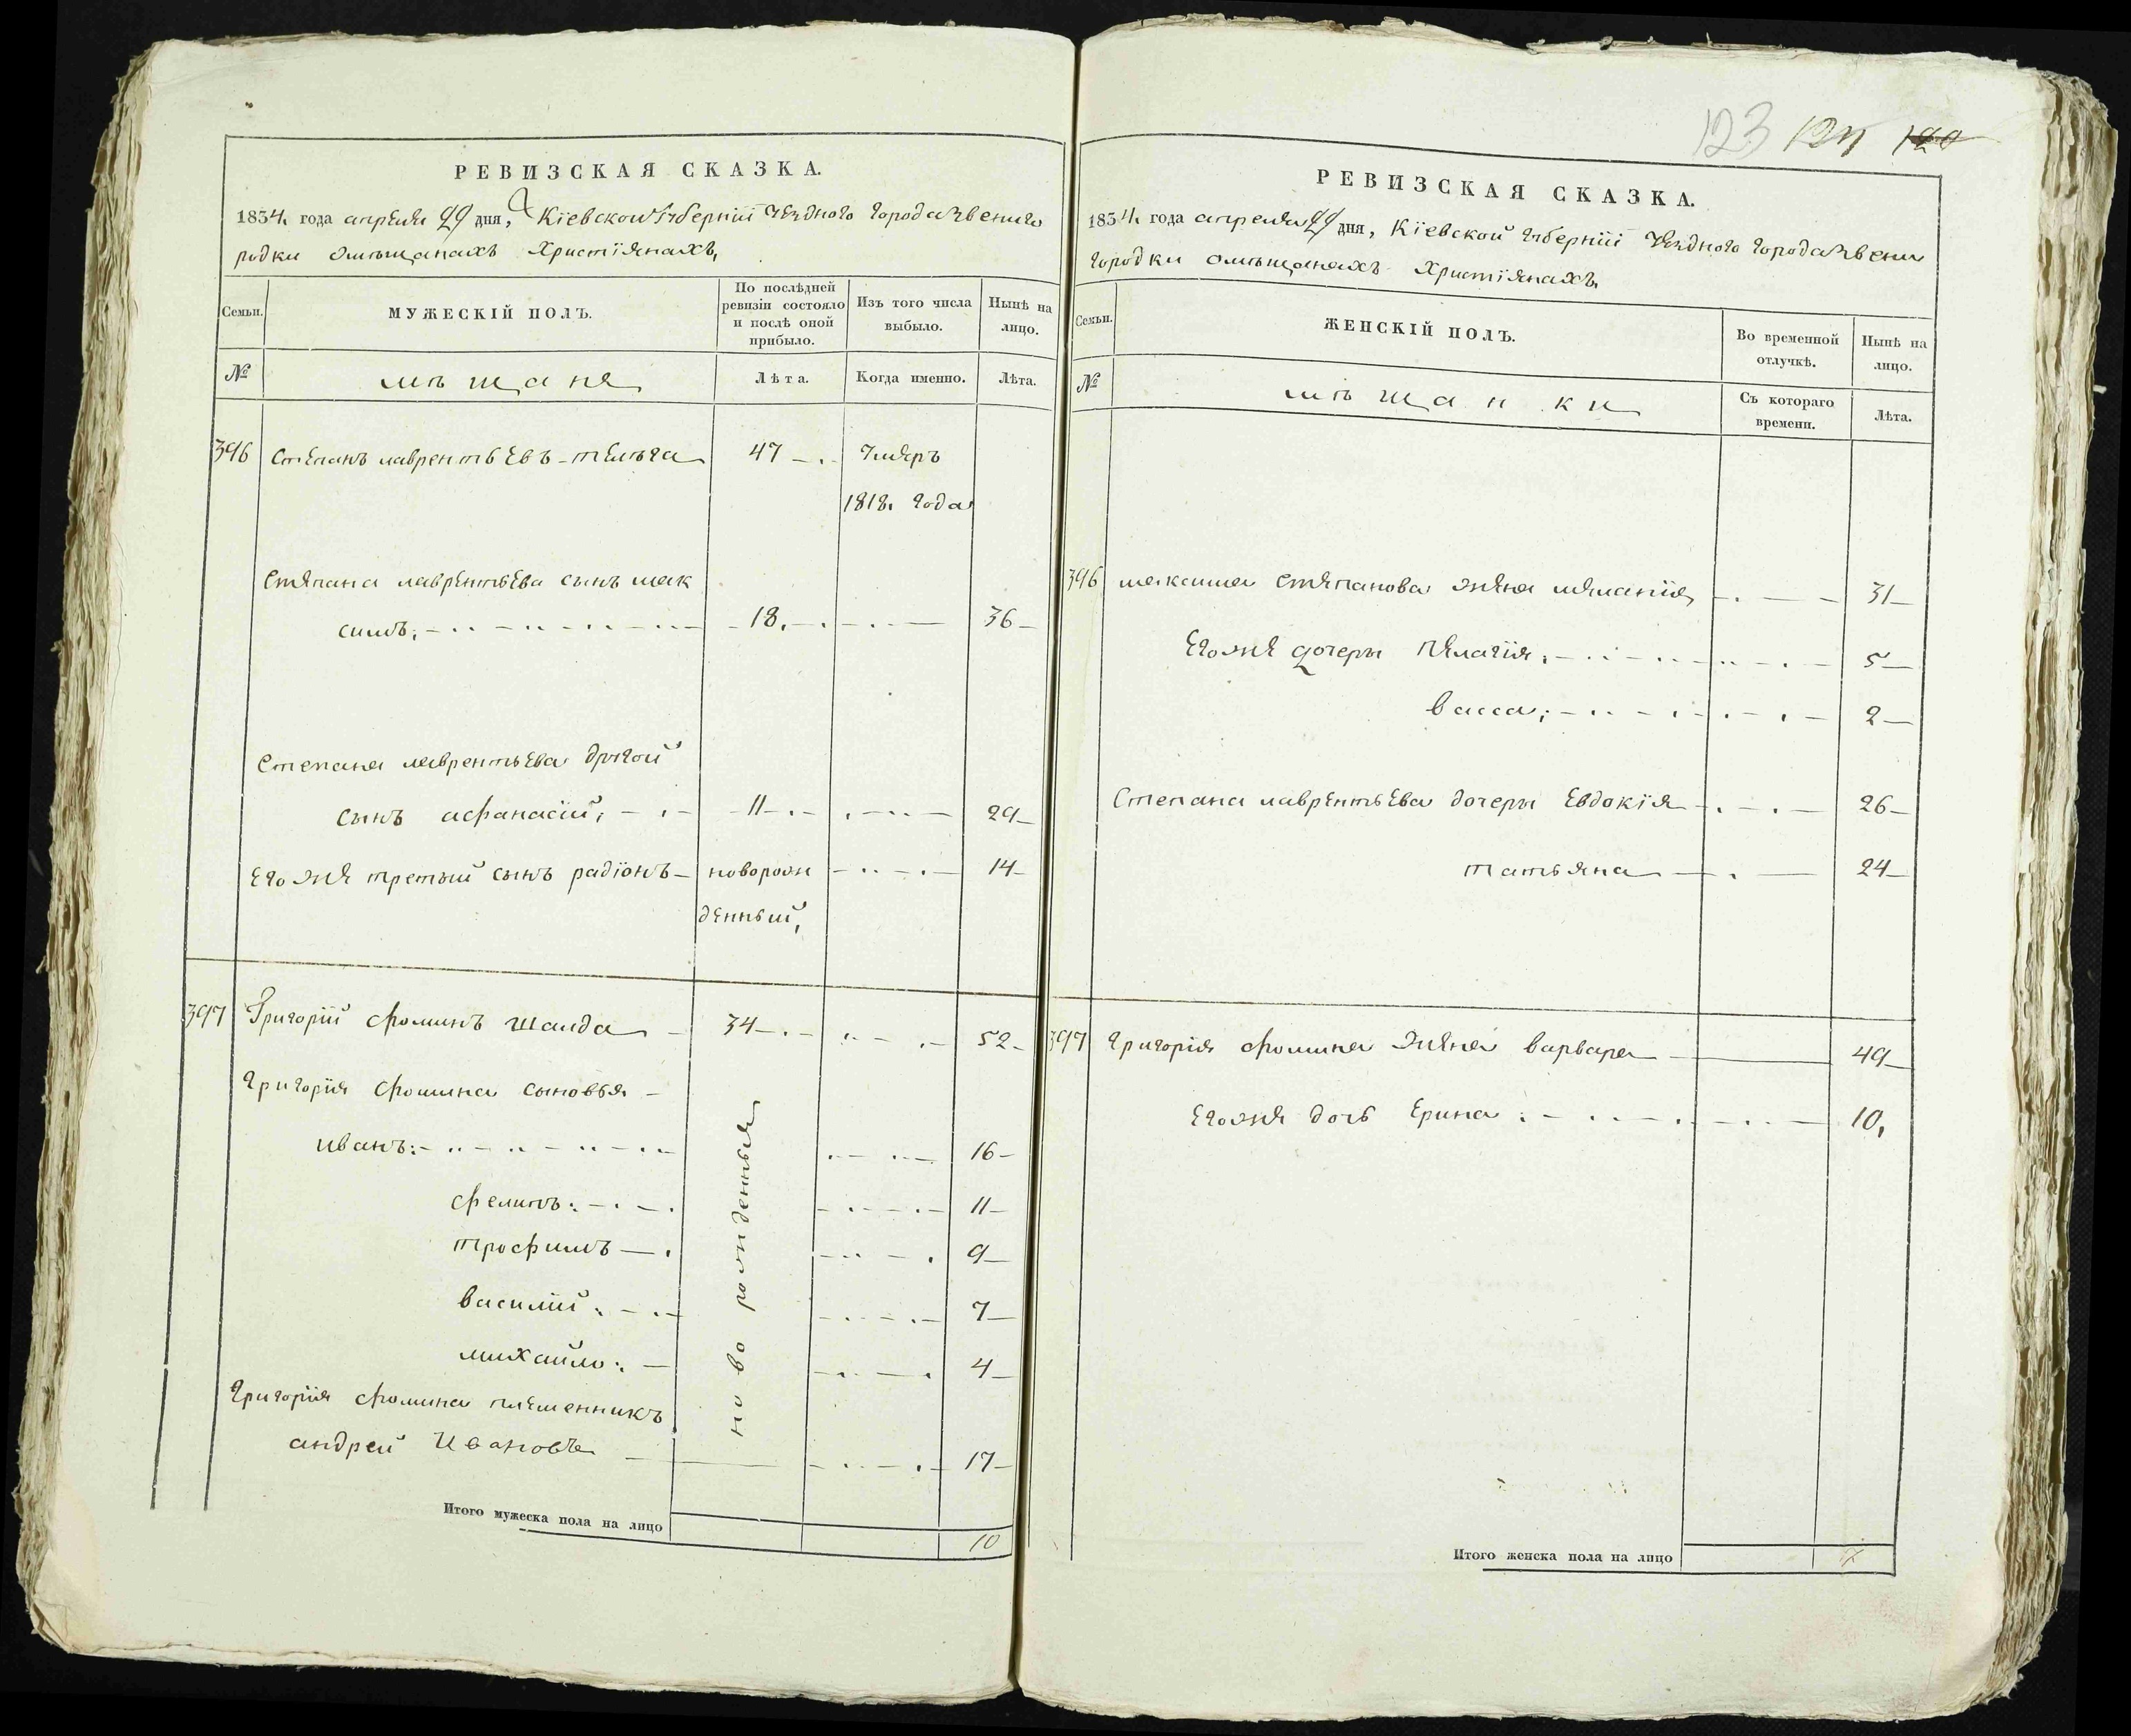 РЕВИЗСКАЯ СКАЗКА.
1834. года апреля 29 дня, Кіевской Губерніи Уезднаго города Звениго
родки омѣщанахъ Христіянахъ,
Семьи.
МУЖЕСКІЙ ПОЛЪ.
По послѣдней ревизіи состояло и послѣ оной прибыло.
Изъ того числа выбыло.
Нынѣ на лицо.
№
мѣщаня
Лѣта.
Когда именно.
Лѣта.
396 Степанъ лаврентьевъ 47 Умяръ
1818. года
Стяпана лаврентьева сынъ мак
симъ; 18. 36
Степана лаврентьева другой
сынъ афанасій, 11 29
Егожя третый сынъ радіонъ новорож 14
денный,
397 Григорій фоминъ Шаида 34 52
григорія фомина сыновья
иванъ: 16
филипъ: 11
трофимъ 9
василій: 7
михайло: 4
новорожденныя
григорія фомина племенникъ
андрей Ивановъ 17
Итого мужеска пола на лицо 10
123 124 120
РЕВИЗСКАЯ СКАЗКА.
1834. года апреля 29 дня, Кіевской губерніи Уезднаго города Звени
городки омѣщанахъ Христіянахъ,
Семьи.
ЖЕНСКІЙ ПОЛЪ.
Во временной отлучкѣ.
Нынѣ на лицо.
№
мѣщанки
Съ котораго времени.
Лѣта.
396 максима Стяпанова жяна мяланія, 31
Егожя дочеры Пялагія, 5
васса; 2
Степана лаврентьева дочеры Евдокія 26
татьяна 24
397 григорія фомина жяна варвара 49
Егожя дочь Ерина: 10,
Итого женска пола на лицо 7